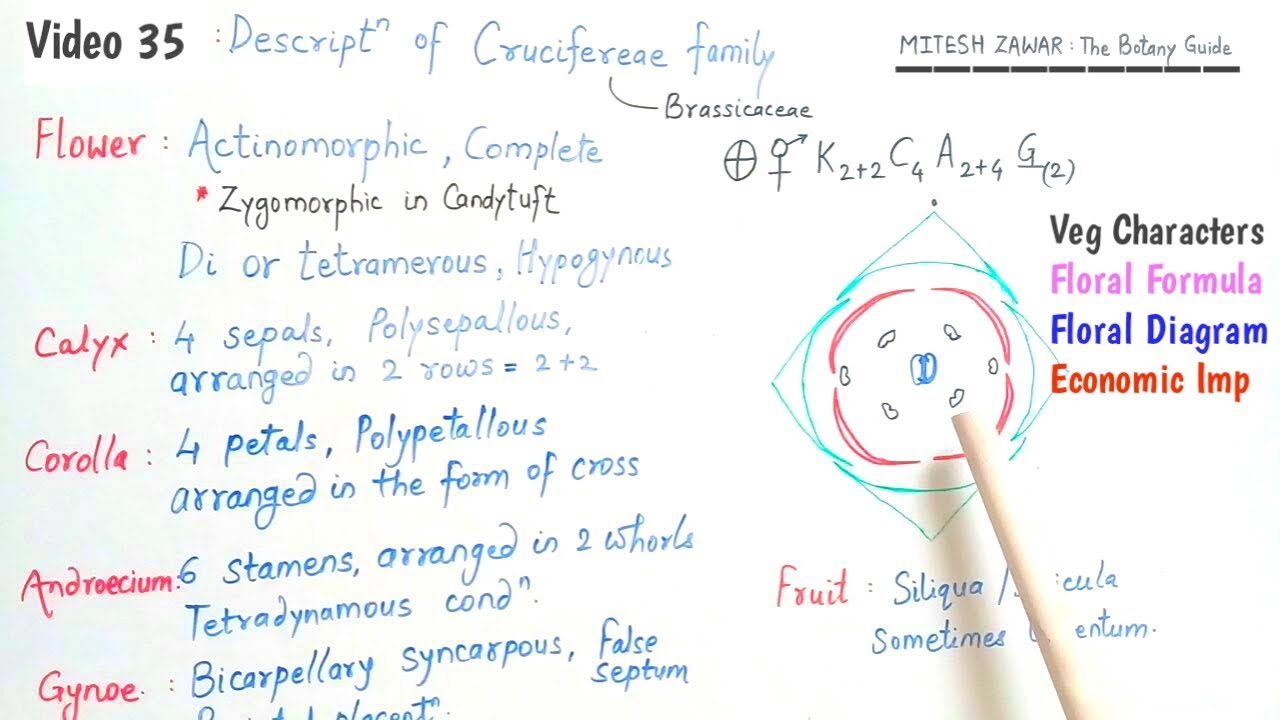 Video 35 : Descriptⁿ of Crucifereae family
MITESH ZAWAR : The Botany Guide
Brassicaceae
Flower : Actinomorphic, Complete
* Zygomorphic in Candytuft
Di or tetramerous, Hypogynous
⊕ ⚥ K2+2 C4 A2+4 G(2)
Veg Characters
Floral Formula
Floral Diagram
Economic Imp
Calyx : 4 sepals, Polysepallous,
arranged in 2 rows = 2+2
Corolla : 4 petals, Polypetallous
arranged in the form of cross
Androecium : 6 stamens, arranged in 2 whorls
Tetradynamous condⁿ.
Gynoe. : Bicarpellary syncarpous, false
septum
placentⁿ.
Fruit : Siliqua /
Sometimes